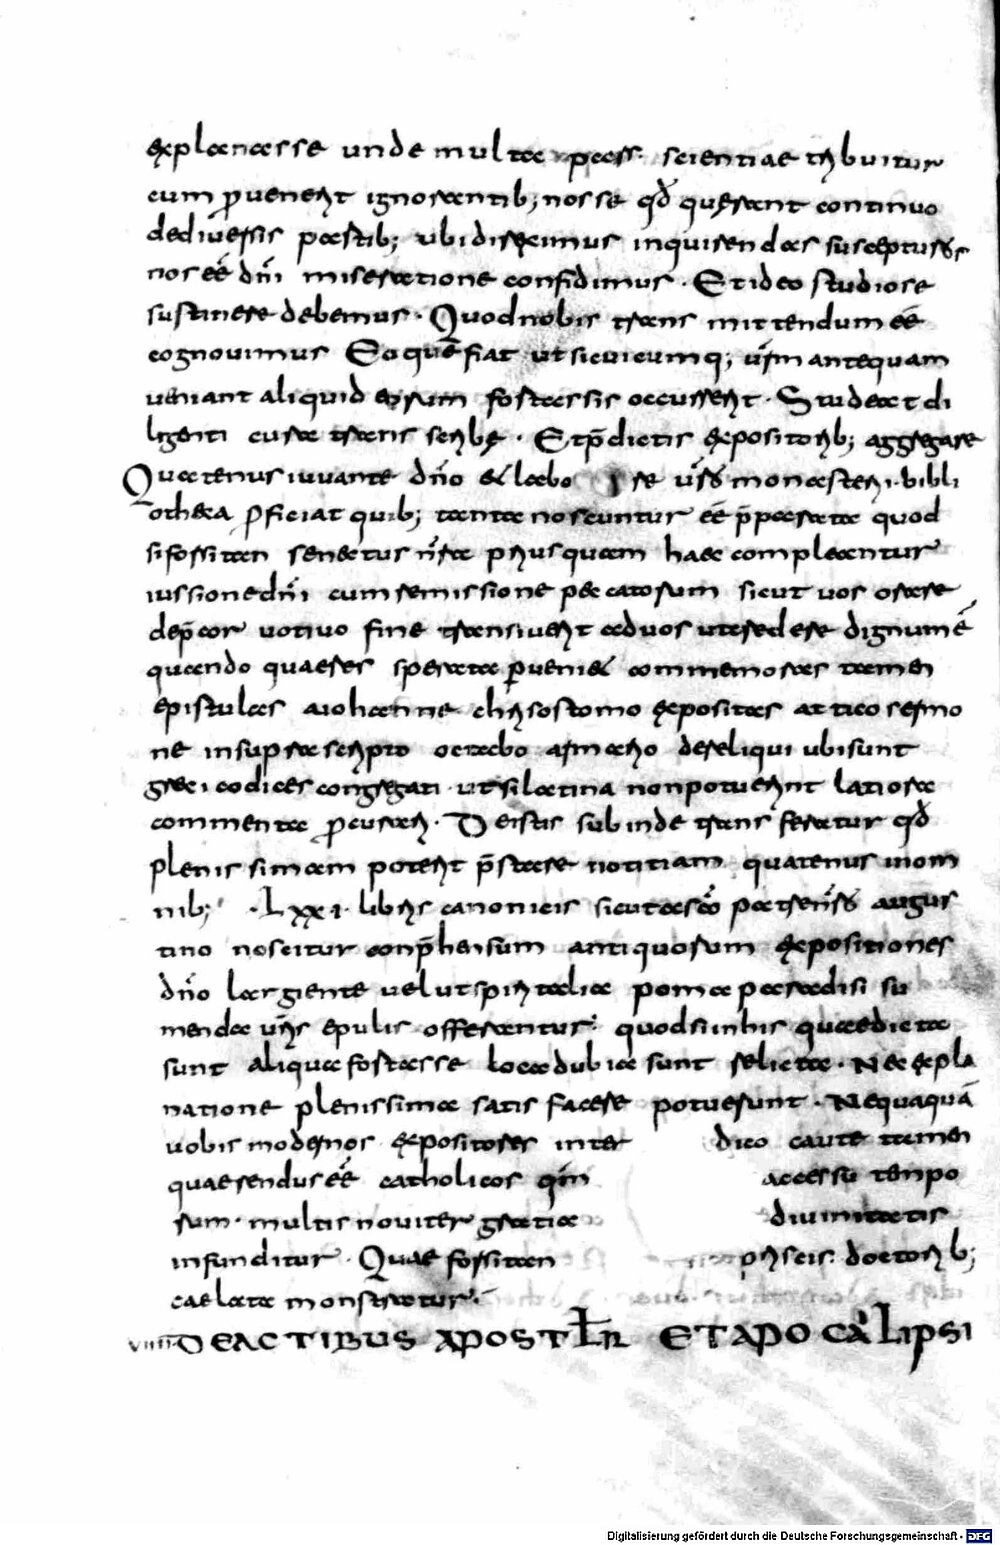 explanasse unde multa pars scientiae tribuitur
cum ꝓvenerit ignorantib; nosse qđ quęrant continuo
dediversis partib; ubi diximus inquirendas suscepturos
nos eē dn̄i miseratione confidimus · Et ideo studiose
sustinere debemus · Quod nobis transmittendum eē
cognovimus Eo quē fiat ut sicuicumq; vr̄m antequam
veniant aliquid eorum fortassis occurrerit · Studeat di
ligenti cura transscribę · Et p̄dictis expositorib; aggregare
Quatenus iuvante dn̄o et labore vr̄o monasterii · bibli
otheca ꝓficiat quib; tanta noscuntur eē p̄parata quod
si forsitan senectus nr̄a priusquam haec compleantur
iussione dn̄i cum remissione peccatorum sicut vos orare
dep̄cor votivo fine transiverit ad vos ut credere dignum ē
quando quaeres sperata ꝑveniet commemoras tamen
epistulas a iohanne chrisostomo expositas attico sermo
ne in suprascripto octabo armario dereliqui ubi sunt
greci codices congregati · ut si latina non potuerint latiora
commenta ꝓcurari · De istis subinde transferatur qđ
plenissimam poterit p̄stare notitiam quatenus in om
nib; · Lxxi · libris canonicis sicut a sc̄o patre nr̄o augus
tino noscitur conp̄hensum antiquorum expositiones
dn̄o largiente velut spiritalia poma paradisi su
menda vr̄is epulis offerantur · quod si in his quae dicta
sunt aliqua fortasse loca dubia sunt relicta · Nec expla
natione plenissima satis facere potuerunt · Nequaquā
vobis modernos expositores inter dico caute tamen
quaerendus eē catholicos qm̄ accessu tenpo
rum · multis noviter gratia divinitatis
infunditur · Quae forsitan priscis · doctorib;
caelata monstratur ·
viiii DE ACTIBUS APOSTLR̄ ET APOCALIPSI
Digitalisierung gefördert durch die Deutsche Forschungsgemeinschaft - DFG